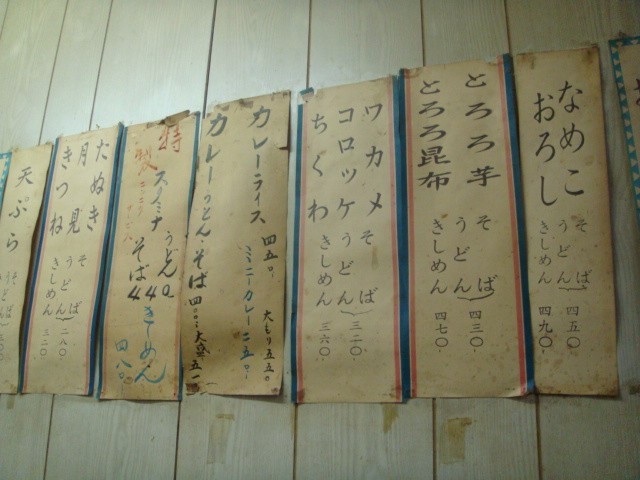 なめこ
おろし
そば
うどん 四五〇
きしめん 四九〇
とろろ芋
とろろ昆布
そば
うどん 四三〇
きしめん 四七〇
ワカメ
コロッケ
ちくわ
そば
うどん 三二〇
きしめん 三六〇
カレーライス 四五〇
大もり五五〇
ミニーカレー二五〇
カレーうどん・そば四
大盛
特製
スタミナ
うどん
そば
きしめん
四八〇
たぬき
月見
きつね
そば
うどん 二八〇
きしめん 三二〇
天ぷら
そば
うどん